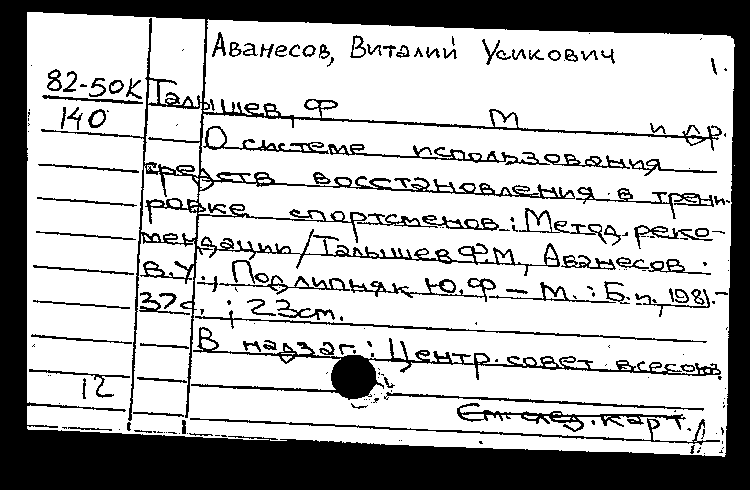 Аванесов, Виталий Усикович 1.
82-50К Талышев, Ф М и др.
140
О системе использования
средств восстановления в трени-
ровке спортсменов: Метод. реко-
мендации / Талышев Ф.М., Аванесов
В.У., Подлипняк Ю.Ф — М. : Б.и., 1981.-
37с. ; 23см.
В надзаг.: Центр. совет всесоюз.
12
См. след. карт.